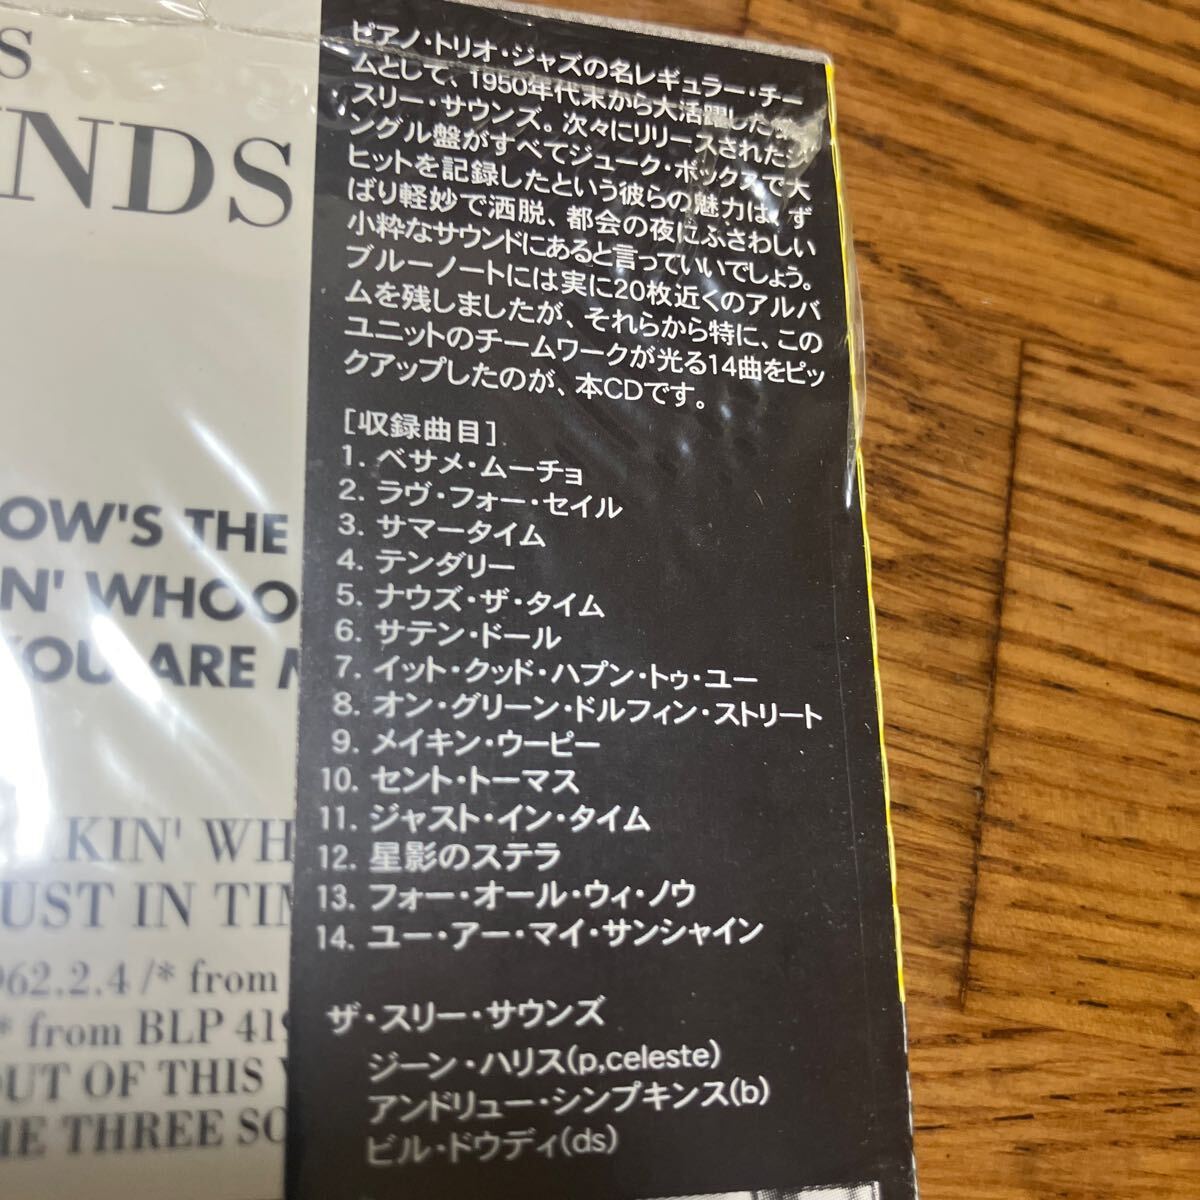 S
NDS
OW'S THE
N' WHOO
YOU ARE M
KIN' WH
UST IN TIM
962.2.4 /* from
* from BLP 419
OUT OF THIS
HE THREE SO
ピアノ・トリオ・ジャズの名レギュラー・チー
ムとして、1950年代末から大活躍した
スリー・サウンズ。次々にリリースされたシ
ングル盤がすべてジューク・ボックスで大
ヒットを記録したという彼らの魅力は、ず
ばり軽妙で洒脱、都会の夜にふさわしい
小粋なサウンドにあると言っていいでしょう。
ブルーノートには実に20枚近くのアルバ
ムを残しましたが、それらから特に、この
ユニットのチームワークが光る14曲をピッ
クアップしたのが、本CDです。
[収録曲目]
1. ベサメ・ムーチョ
2. ラヴ・フォー・セイル
3. サマータイム
4. テンダリー
5. ナウズ・ザ・タイム
6. サテン・ドール
7. イット・クッド・ハプン・トゥ・ユー
8. オン・グリーン・ドルフィン・ストリート
9. メイキン・ウーピー
10. セント・トーマス
11. ジャスト・イン・タイム
12. 星影のステラ
13. フォー・オール・ウィ・ノウ
14. ユー・アー・マイ・サンシャイン
ザ・スリー・サウンズ
ジーン・ハリス(p,celeste)
アンドリュー・シンプキンス(b)
ビル・ドウディ(ds)